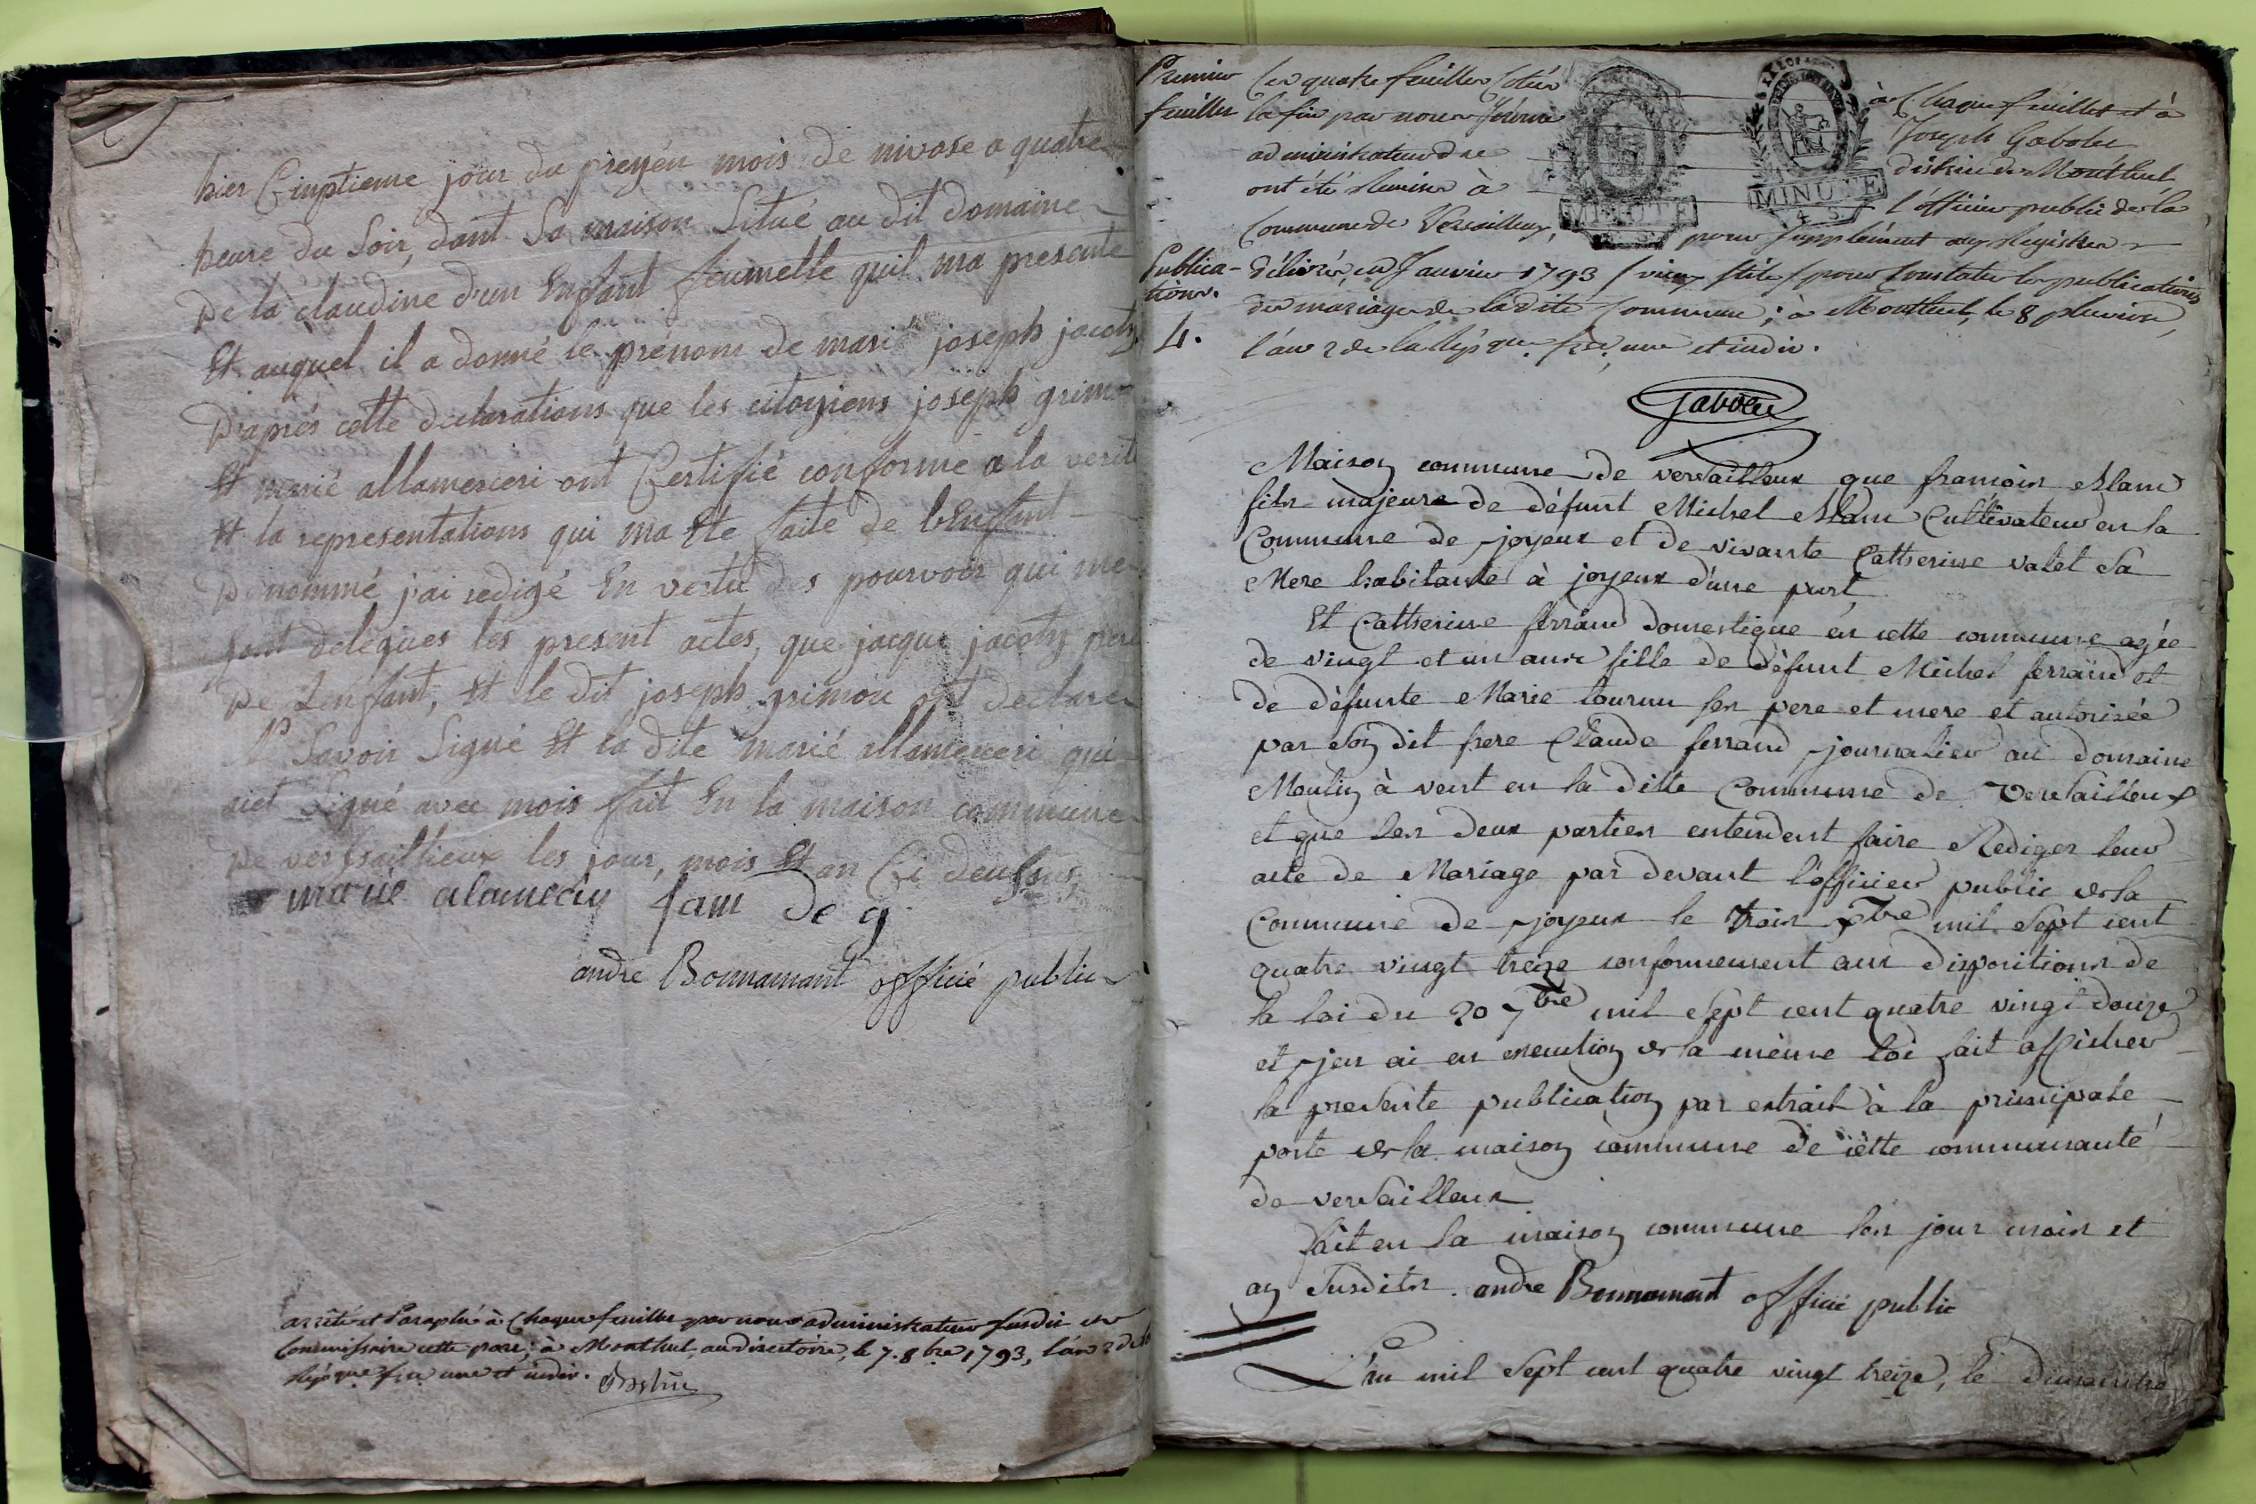 hier Cinptieme jour du preyén mois de nivose a quatre
heure du Soir, dant Sa maison Situé au dit domaine
De la claudine d'un Enfant feumelle quil ma presenté
Et auquel il a donné le prenom de mari joseph jacoty
D'aprés cette declarations que les citoyiens joseph grimou
Et marié allamerceri ont Certifié conforme a la verité
Et la representations qui ma Ete faite de l'Enfant
Denommé j'ai redigé En vertu des pourvoir qui me
sont delegues les present actes, que jacque jacoty pere
De Lenfant, Et le dit joseph grimou ont declare
Ne Savoir Signé Et la dite marié allamerceri qui
aiet Signé avec mois fait En la maison commune
De versaillieux les jour, mois Et an Ci deussus,
marie alamerciri fam de g
andré Bonnamant officié public
arrêté et Paraphé à Chaque feuillet par nous administrateur susdit
Commissaire cette part; à Montluel, au directoire, le 7. 8bre 1793, l'an 2 de la
Rép que fse une et indiv.
Premier feuillet
Les quatre feuillets Cotés à Chaque feuillet et à
la fin par nous Joseph Gabolu
administrateur du district de Montluel
ont été remis à l'officier public de la
Commune de Versailleux, pour supplément aux Registres
MINUTE
MINUTE
4. S.
Publications.
délivrés en Janvier 1793 / vieux stile / pour Constater les publications
des mariages de ladite Commune; à Montluel, le 8 pluviose,
4.
l'an 2 de la Rép que fse, une et indiv.
Maison commune de versailleux que francois
fils majeure de défunt Michel Cultivateur en la
Commune de joyeux et de vivante Catherine valet Sa
Mere habitante à joyeux d'une part
Et Catherine ferrand domestique en cette commune agée
de vingt et un ans fille de défunt Michel ferrand et
de défunte Marie tournu ses pere et mere et autorisée
par Son dit frere Claude ferrand journalier au domaine
Moulin à vent en la ditte Commune de Versailleux
et que les deux parties entendent faire Rediger leur
acte de Mariage par devant l'officier public de la
Commune de joyeux le trois bre mil Sept cent
quatre vingt treize conformement aux dispositions de
la loi du 20 7bre mil Sept cent quatre vingt douze
et j'en ai en execution de la même loi fait afficher
la presente publication par extrait à la principale
porte de la maison commune de cette communauté
de versailleux
fait en la maison commune les jour mois et
an Susdits. andre Bonnamant officié public
L'an mil Sept cent quatre vingt treize, le dimanche